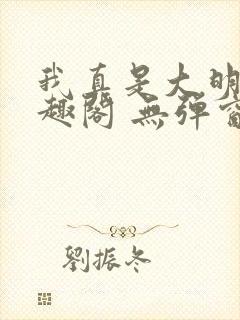 我真是大明
趣閣 無彈窗
劉振冬